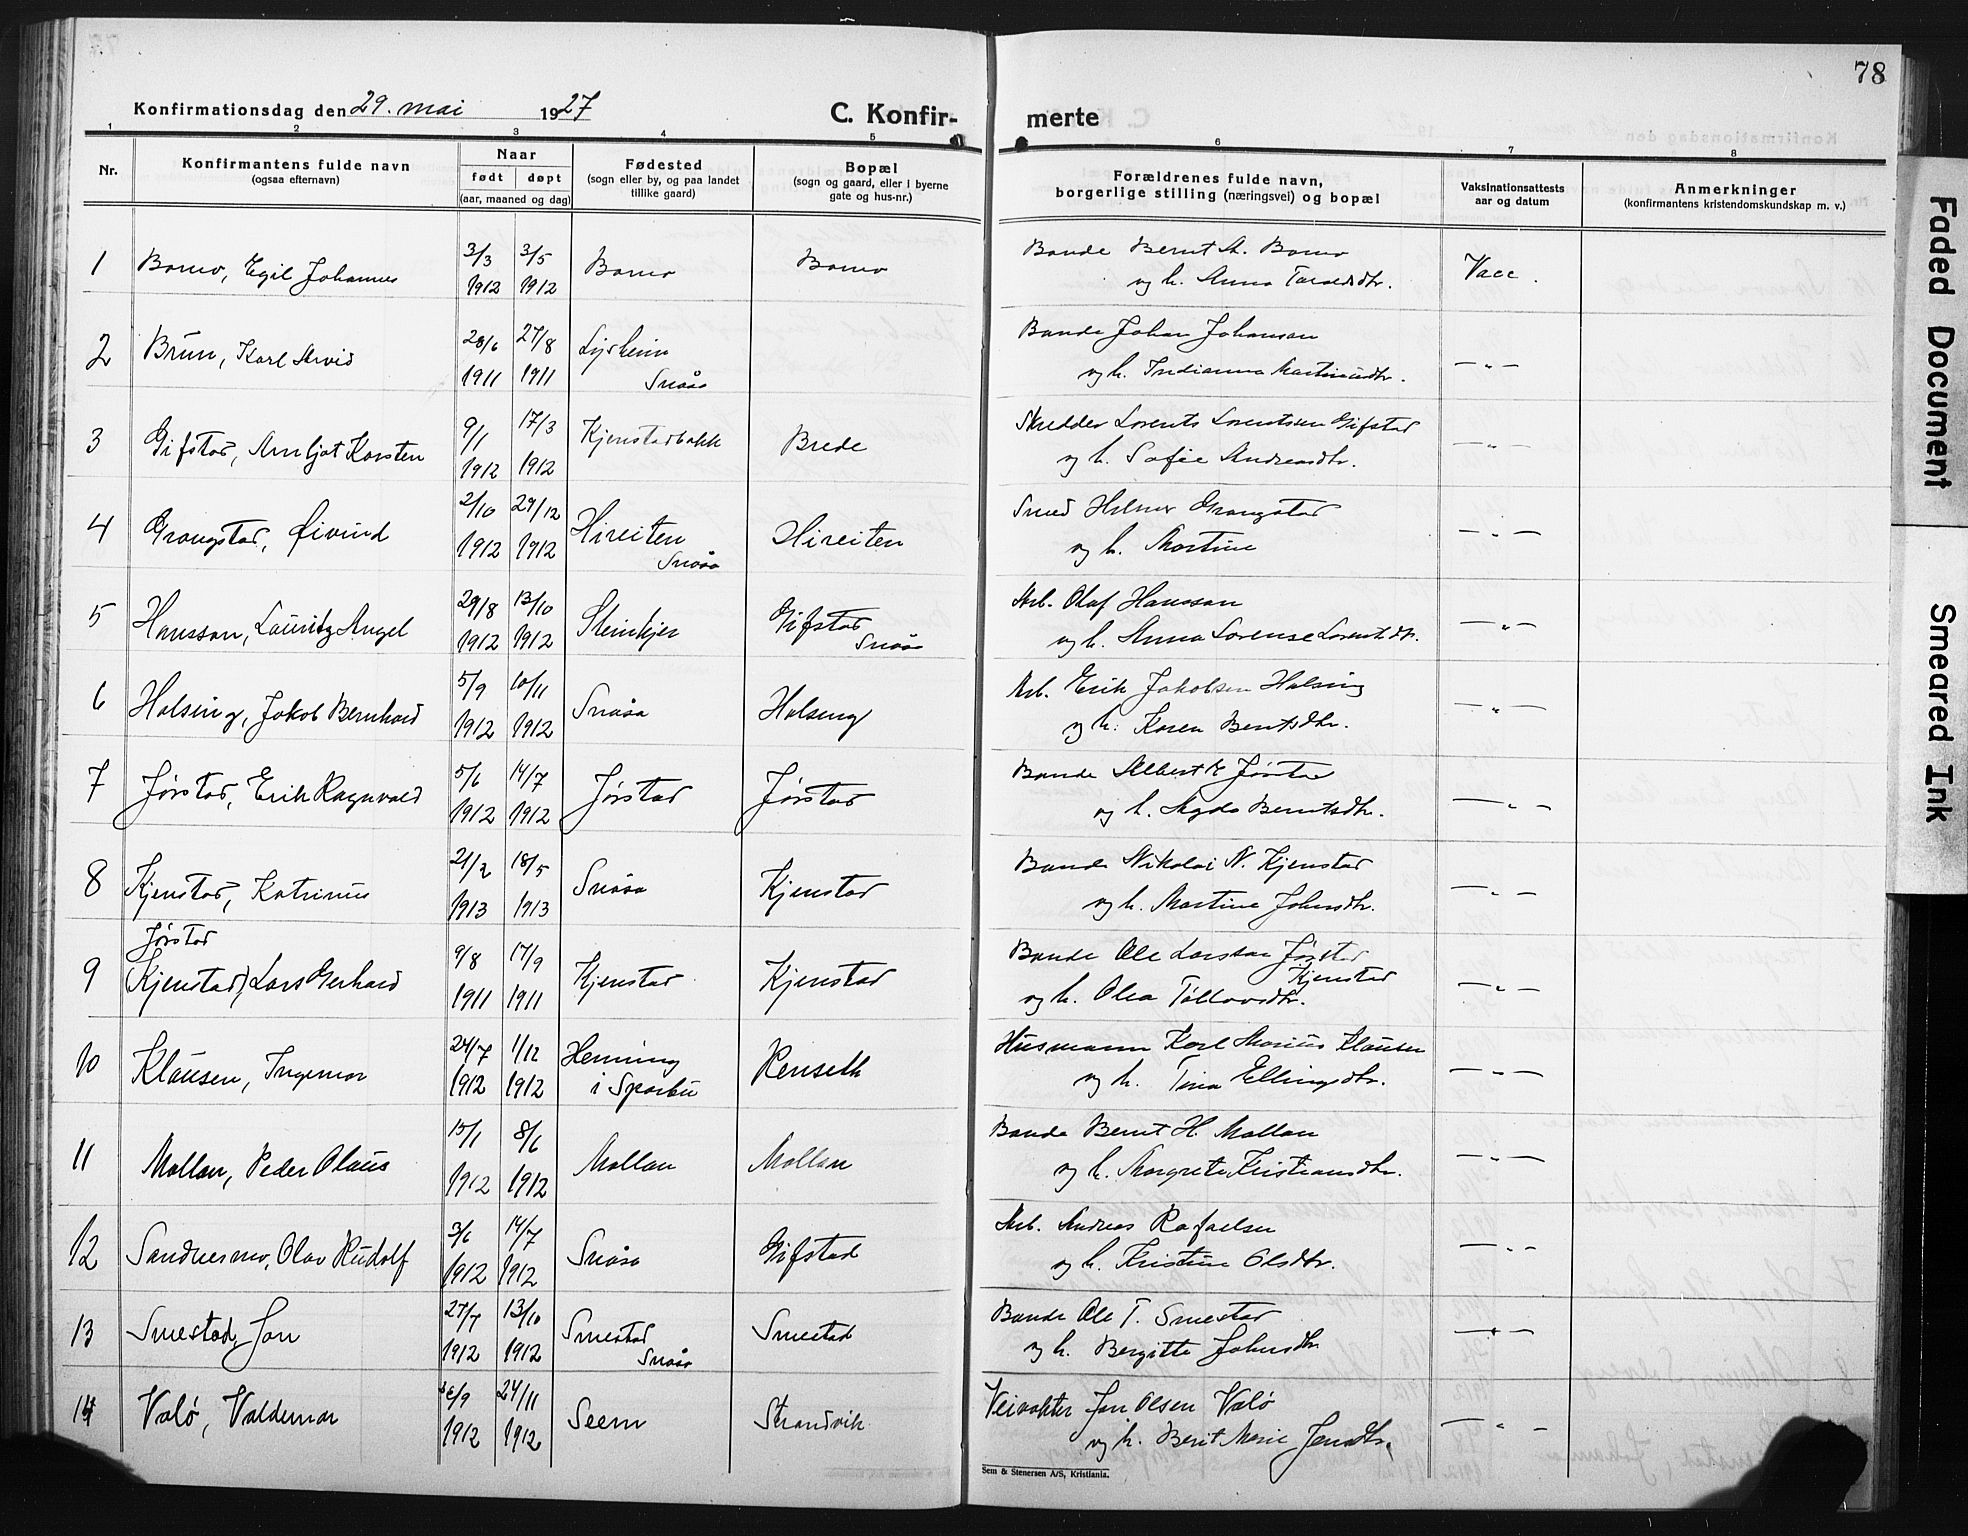 78
Konfirmationsdag den 29. mai 1927
C. Konfirmerte
1 2 3 4 5 6 7 8
Nr.
Konfirmantens fulde navn
(ogsaa efternavn)
Naar
født døpt
(aar, maaned og dag)
Fødested
(sogn eller by, og paa landet
tillike gaard)
Bopæl
(sogn og gaard, eller i byerne
gate og hus-nr.)
Forældrenes fulde navn,
borgerlige stilling (næringsvei) og bopæl
Vaksinationsattests
aar og datum
Anmerkninger
(konfirmantens kristendomskundskap m. v.)
1 Bomo, Egil Johannes 3/3 1912 3/5 1912 Bomo Bomo
Bonde Bernt A. Bomo
og h. Anna Taraldsdtr. Vacc.
2 Brun, Karl Arvid 28/6 1911 27/8 1911 Lysheim Snåsa
Bonde Johan Johansen
og h. Indianna Martinusdtr. — " —
3 Gifstad, Arnljot Karsten 9/1 1912 17/3 1912 Kjenstadbakk Brede
Skredder Lorents Lorentsen Gifstad
og h. Sofie Andreasdtr. — " —
4 Grongstad, Øivind 2/10 1912 29/12 1912 Hireiten Snåsa Hireiten
Smed Hilmer Grongstad
og h. Martine — " —
5 Hansson, Lauritz Angel 29/8 1912 13/10 1912 Steinkjer Gifstad Snåsa
Arb. Olaf Hansson
og h. Anna Lorense Lorentsdtr. — " —
6 Halsing, Jakob Bernhard 5/9 1912 10/11 1912 Snåsa Halsing
Arb. Erik Jakobsen Halsing
og h. Karen Berntsdtr. — " —
7 Jørstad, Erik Ragnvald 5/6 1912 14/7 1912 Jørstad Jørstad
Bonde Albert E. Jørstad
og h. Agda Berntsdtr. — " —
8 Kjenstad, Katrinus 21/2 1913 18/5 1913 Snåsa Kjenstad
Bonde Nikolai N. Kjenstad
og h. Martine Johnsdtr. — " —
Jørstad
9 (Kjenstad), Lars Gerhard 9/8 1911 17/9 1911 Kjenstad Kjenstad
Bonde Ole Larsen Jørstad
Kjenstad
og h. Olea Tollovsdtr. — " —
10 Klausen, Ingemar 24/7 1912 1/12 1912 Henning i Sparbu Renseth
Husmann Karl Marius Klausen
og h. Tina Ellingsdtr. — " —
11 Mollan, Peder Olaus 15/1 1912 8/6 1912 Mollan Mollan
Bonde Bernt H. Mollan
og h. Margrete Kristiansdtr. — " —
12 Sandnesmo, Olav Rudolf 3/6 1912 14/7 1912 Snåsa Gifstad
Arb. Andreas Rafaelsen
og h. Kristine Olsdtr. — " —
13 Smestad, Jon 27/7 1912 13/10 1912 Smestad Snåsa Smestad
Bonde Ole T. Smestad
og h. Bergitte Johnsdtr — " —
14 Valø, Valdemar /9 1912 24/11 1912 Seem Strandvik
Veivokter Jon Olsen Valø
og h. Berit Marie Jensdtr. — " —
Sem & Stenersen A/S, Kristiania.
Faded Document
Smeared Ink